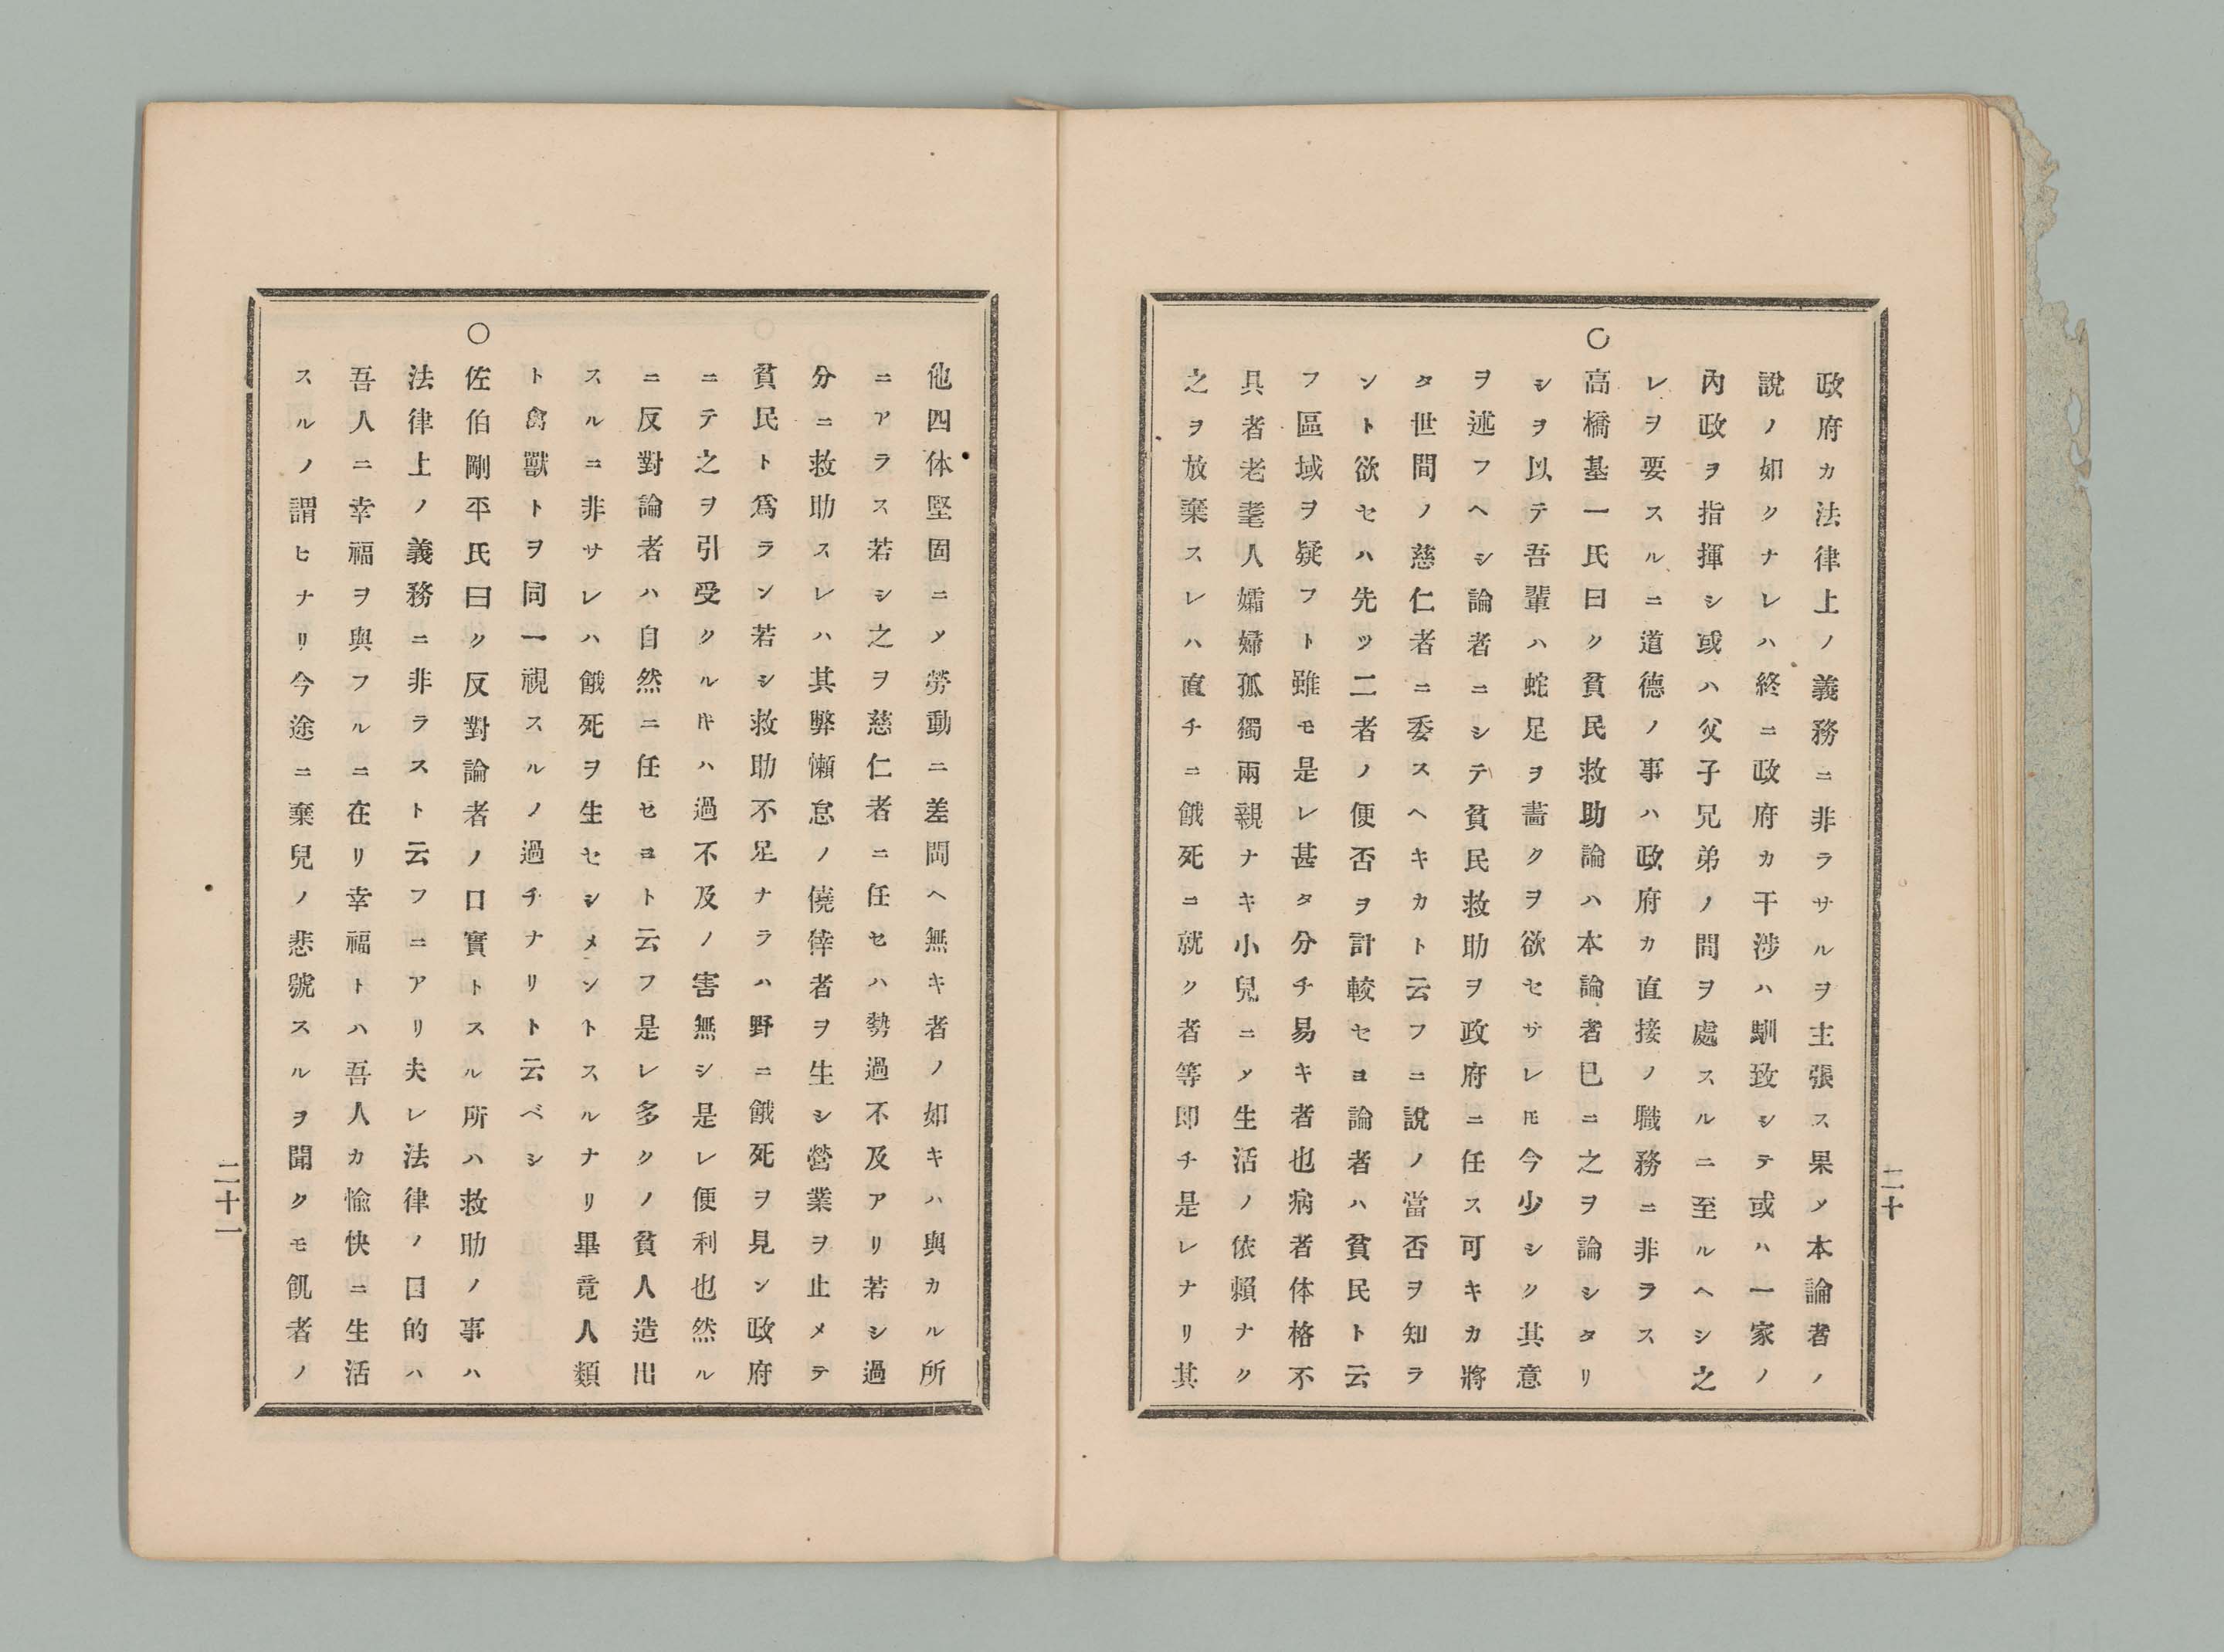 政府カ法律上ノ義務ニ非ラサルヲ主張ス果メ本論者ノ
說ノ如クナレハ終ニ政府カ干涉ハ馴致シテ或ハ一家ノ
內政ヲ指揮シ或ハ父子兄弟ノ間ヲ處スルニ至ルヘシ之
レヲ要スルニ道德ノ事ハ政府カ直接ノ職務ニ非ラス
○高橋基一氏曰ク貧民救助論ハ本論者已ニ之ヲ論シタリ
シヲ以テ吾輩ハ蛇足ヲ畵クヲ欲セサレ𪜈今少シク其意
ヲ述フヘシ論者ニシテ貧民救助ヲ政府ニ任ス可キカ將
タ世間ノ慈仁者ニ委スヘキカト云フニ說ノ當否ヲ知ラ
ント欲セハ先ツ二者ノ便否ヲ計較セヨ論者ハ貧民ト云
フ區域ヲ疑フト雖モ是レ甚タ分チ易キ者也病者体格不
具者老耄人孀婦孤獨兩親ナキ小兒ニメ生活ノ依賴ナク
之ヲ放棄スレハ直チニ餓死ニ就ク者等即チ是レナリ其
二十
他四体堅固ニメ勞動ニ差問ヘ無キ者ノ如キハ與カル所
ニアラス若シ之ヲ慈仁者ニ任セハ勢過不及アリ若シ過
分ニ救助スレハ其弊懶怠ノ僥倖者ヲ生シ營業ヲ止メテ
貧民ト爲ラン若シ救助不足ナラハ野ニ餓死ヲ見ン政府
ニテ之ヲ引受クル𪜈ハ過不及ノ害無シ是レ便利也然ル
ニ反對論者ハ自然ニ任セヨト云フ是レ多クノ貧人造出
スルニ非サレハ餓死ヲ生セシメントスルナリ畢竟人類
ト禽獸トヲ同一視スルノ過チナリト云ベシ
○佐伯剛平氏曰ク反對論者ノ口實トスル所ハ救助ノ事ハ
法律上ノ義務ニ非ラスト云フニアリ夫レ法律ノ目的ハ
吾人ニ幸福ヲ與フルニ在リ幸福トハ吾人カ愉快ニ生活
スルノ謂ヒナリ今途ニ棄兒ノ悲號スルヲ聞クモ飢者ノ
二十一